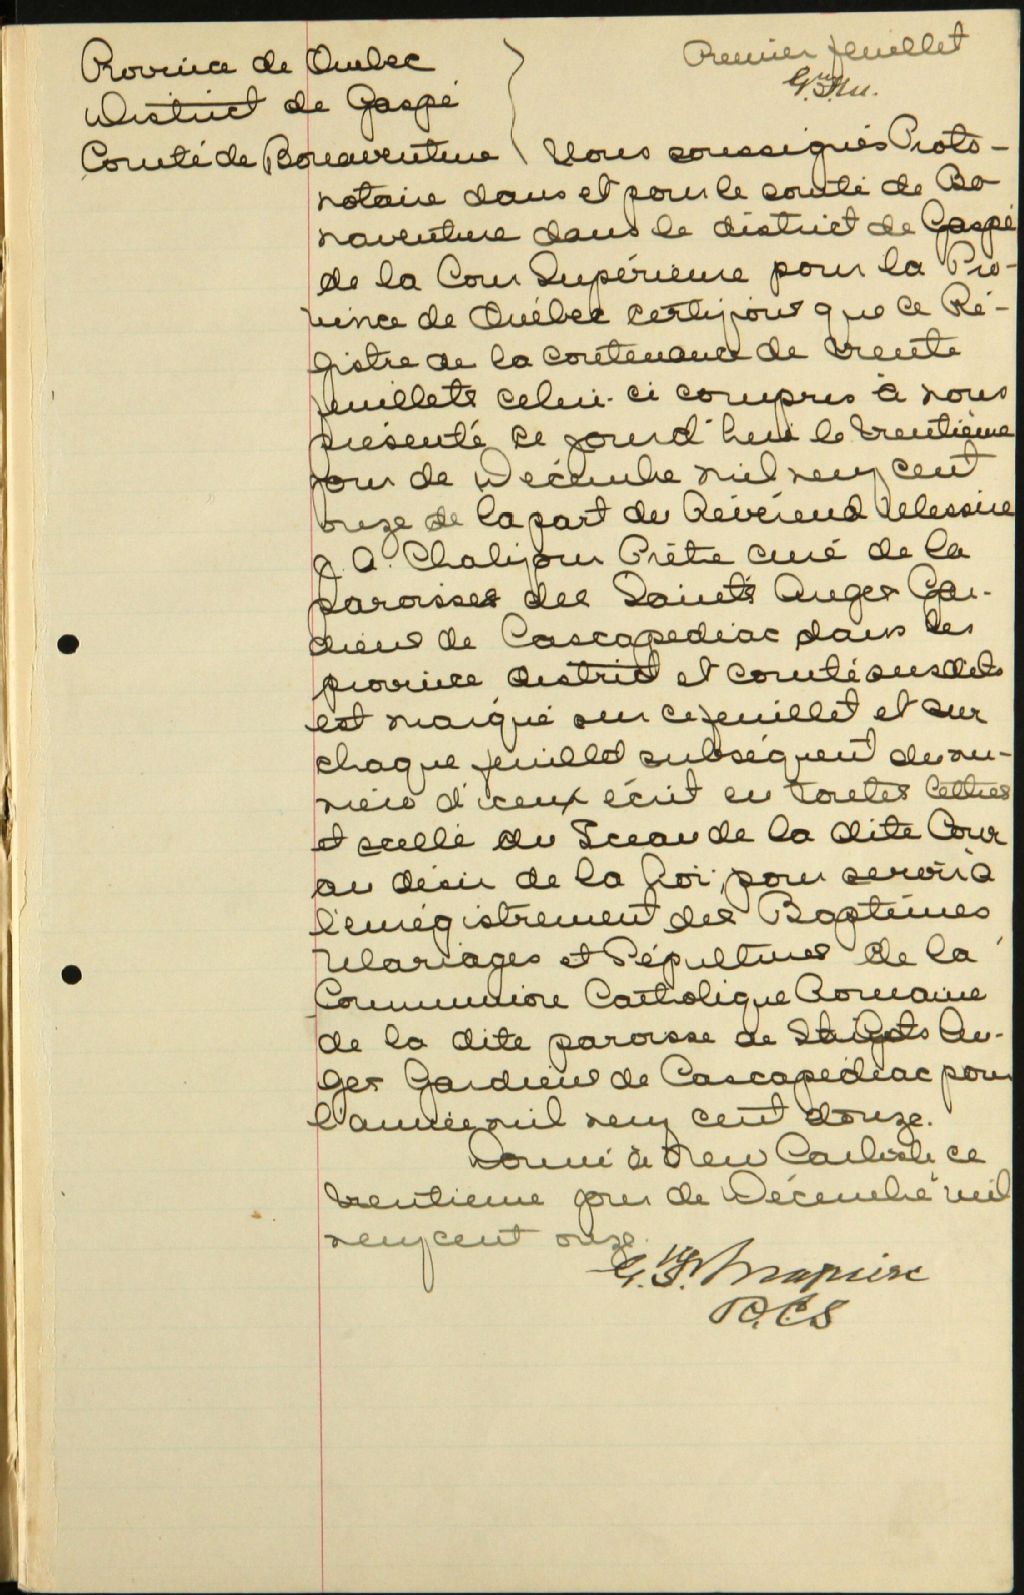 Province de Québec
District de Gaspé
Comté de Bonaventure
Premier feuillet
Nous soussignés Proto-
notaire dans et pour le comté de Bo
naventure dans le district de Gaspé
de la Cour Supérieure pour la Pro-
vince de Québec certifions que ce Ré-
gistre de la contenance de trente
feuillets celui-ci compris à nous
présenté ce jourd'hui le trentième
jour de Décembre mil neuf cent
onze de la part du Révérend Messire
J. A. Chalifour Prêtre curé de la
paroisse des Saints Anges Gar-
diens de Cascapediac dans les
province district et comté susdits
est marqué sur ce feuillet et sur
chaque feuillet subséquent du nu-
méro d'iceux écrit en toutes lettres
et scellé du Sceau de la dite Cour
au désir de la loi, pour servir à
l'enrégistrement des Baptêmes
Mariages et Sépultures de la
Communion Catholique Romaine
de la dite paroisse de Sts An-
ges Gardiens de Cascapédiac pour
l'année mil neuf cent douze.
Donné à New Carlisle ce
trentieme jour de Décembre mil
neuf cent onze.
P.C.S